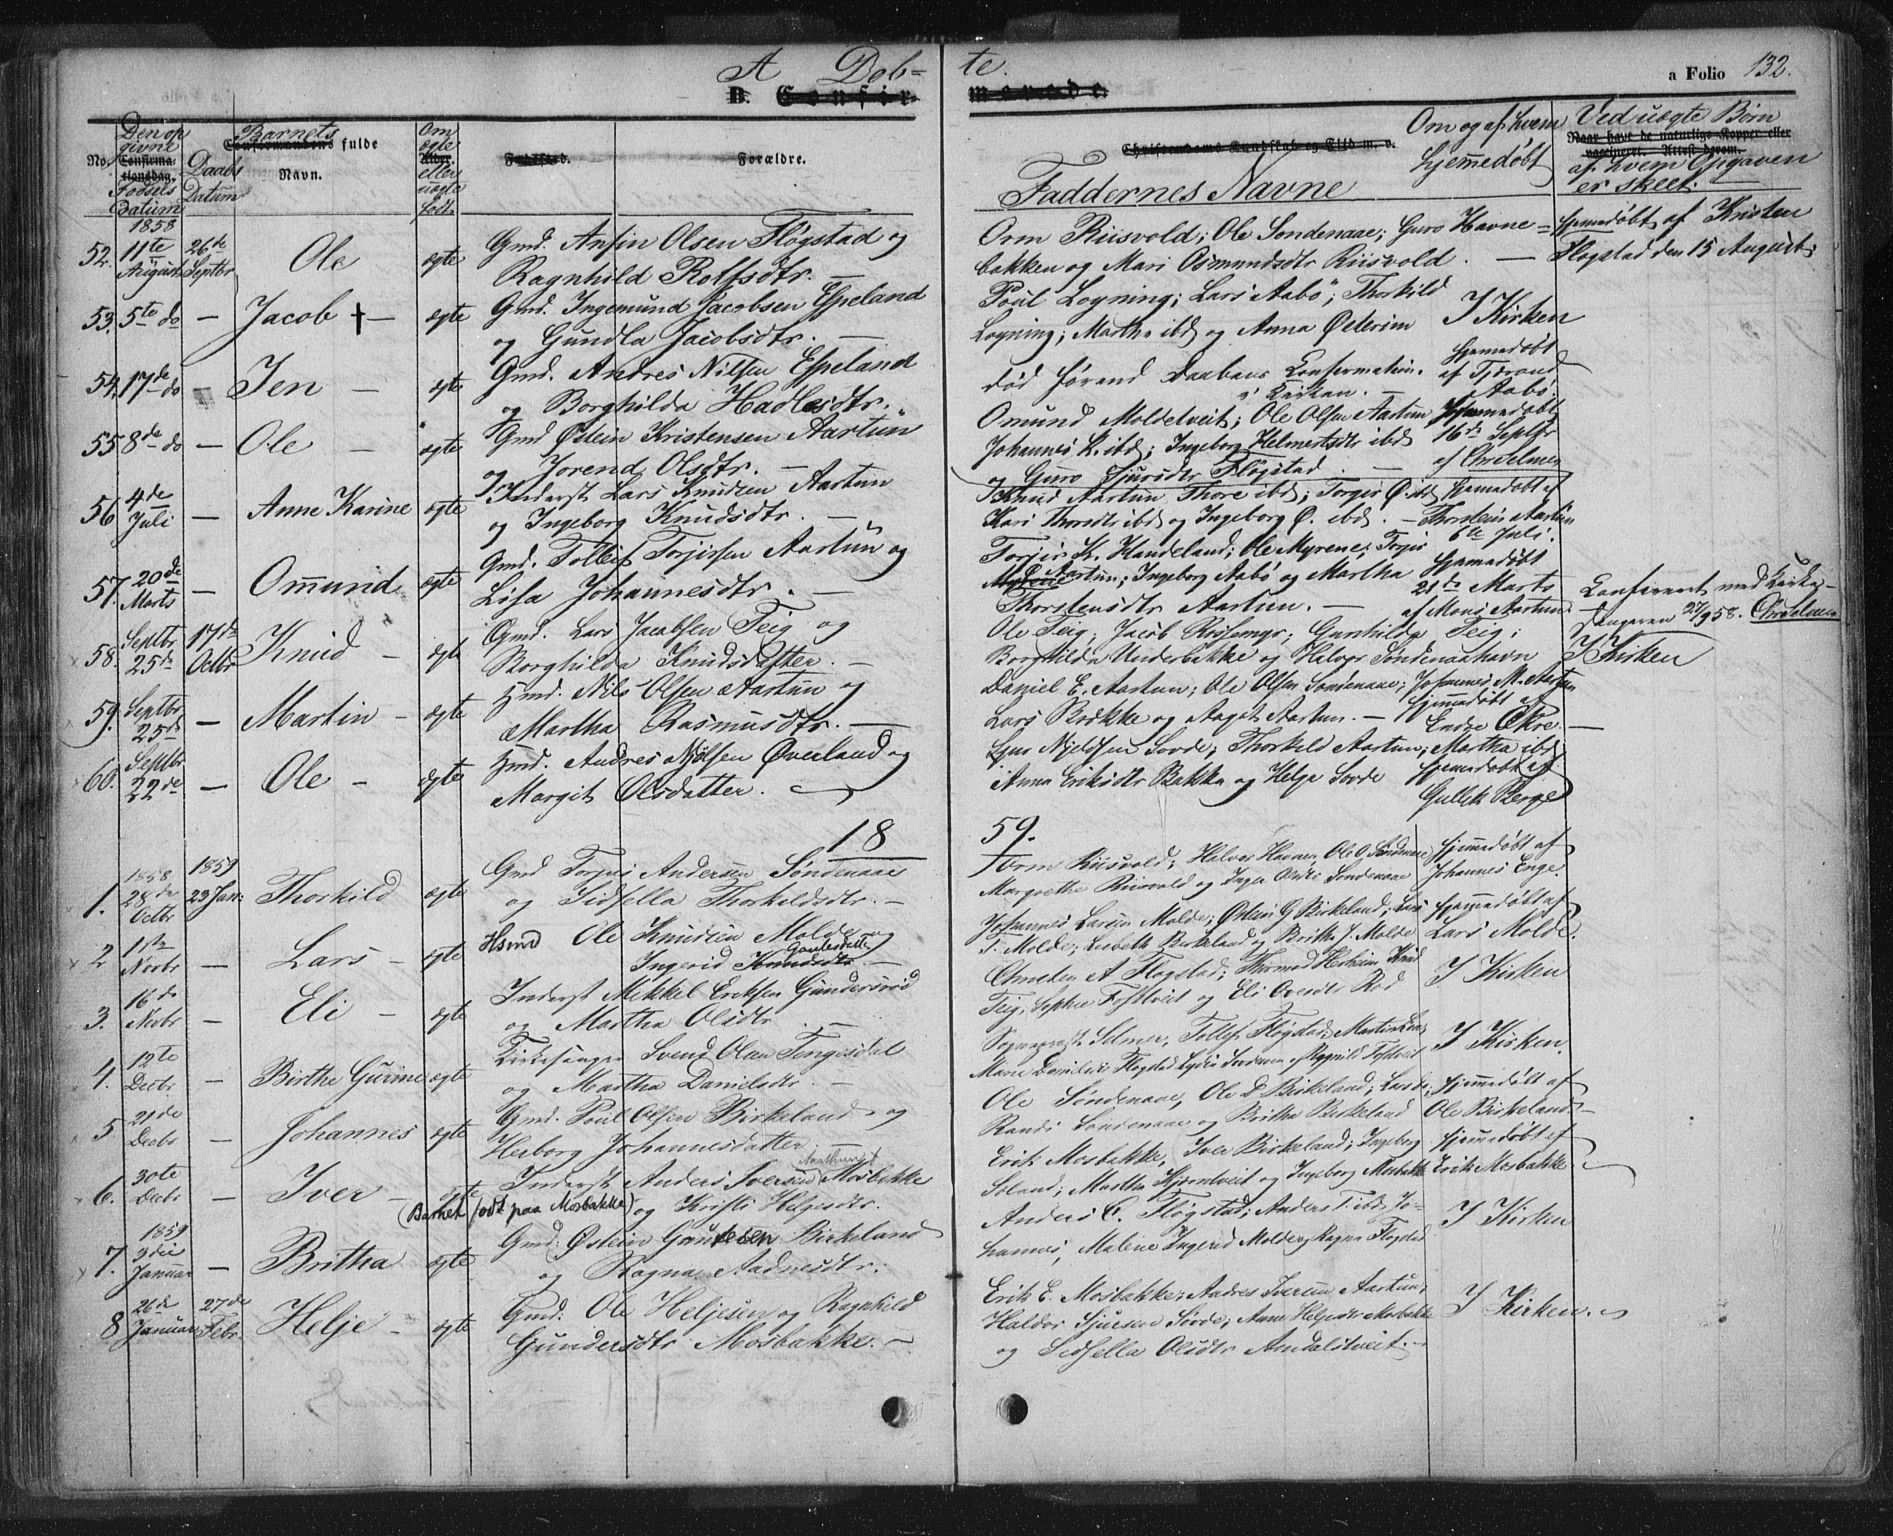 A Døb=
te.
a Folio 132.
B. Confir-
merede.
No.
Den op
givne
Confirma-
tionsdag.
Fødsels
Datum
Daabs
Datum
Barnets
Confirmandens fulde
Navn.
Om
ægte
Alder.
eller
uægte
født.
Fødested.
Forældre.
Christendoms Kundskab og Flid m. v.
Faddernes Navne
Om og af hvem
hjemmedøbt
Ved uægte Børn
Naar havt de naturlige Kopper eller
vaccineret. Attest derom.
af hvem Opgaven
er skeet.
1858
52. 11te August 26de Septbr Ole ægte Gmd. Anfin Olsen Fløgstad og
Ragnhild Rolfsdtr. —
Orm Riisvold; Ole Sondenaae; Guro Havne=
bakken og Mari Osmundsdtr Riisvold. —
hjemmedøbt af Kristen
Flogstad den 15 August.
53. 5te do — Jacob † — ægte Gmd. Ingemund Jacobsen Espeland
og Gundla Jacobsdtr. —
Poul Løgning; Lars Aabø; Thorkild
Løgning; Martha ibd og Anna Østerim
I Kirken
54. 17de do Jen — ægte Gmd. Andres Nilsen Espeland
og Borghilda Hadlesdtr.
død førend Daabens Confirmation
i Kirken. —
hjemmedøbt
af Tjerand
Aabø.
55 8de do — Ole — ægte Gmd Østein Kristensen Aartun
og Jorend Olsdtr. —
Omund Moldetveit; Ole Olsen Aartun
Johannes K. ibd; Ingeborg Helmertsdtr ibd
og Guro Sjursdtr Fløgstad. —
hjemmedøbt
16de Septbr
af Chrselmer
56 4de Juli — Anne Karine ægte Inderst Lars Knudsen Aartun
og Ingeborg Knudsdtr. —
Knud Aartun Thore ibd; Torgis Ø. ibd
Kari Thorsdtr ibd og Ingeborg Ø. ibd. —
hjemmedøbt af
Thorstein Aartun
6te Juli.
57. 20de Marts — Omund ægte Gmd. Tollef Torjersen Aartun og
Lisa Johannesdtr. —
Torjer K. Handeland; Ole Myrene; Torjer
Aartun; Ingeborg Aabø og Martha
Thorstensdtr Aartun. —
hjemmedøbt
21de Marts
af Mons Aartun
Confirmeret med Kirke
gangeren 27/9 58.
58. Septbr 25de 17de Octbr Knud — ægte Gmd. Lars Jacobsen Teig og
Borghilda Knudsdatter. —
Ole Teig; Jacob Røsemyr; Gunhilda Teig;
Borghilda Underbakke og Halvor Sondenaahavn
I Kirken
59. Septbr 25de — Martin — ægte Hmd. Nils Olsen Aartun og
Martha Rasmusdtr. —
Daniel E. Aartun; Ole Olsen Sondenaae; Johannes M. Aartun
Lars Bakke og Aaget Aartun. —
hjemmedøbt af
Endre Økre. —
60. Septbr 22de — Ole — ægte Hmd. Andres Njølsen Øverland og
Margit Olsdatter. —
Sjur Njeldsen Sovde; Thorkild Aartun; Martha ibd
Anna Eriksdtr Bakka og Helge Sovde
hjemmedøbt af
Gullik Berge
18 59.
1. 1858 28de Octbr 1859 23 Jan: Thorkild ægte Gmd Torjus Andersen Søndenaae
og Sidsella Thorkildsdtr. —
Orm Riisvold; Halvor Havnen, Ole O. Søndenaae
Margrethe Riisvold og Inger Olsdtr Sondenaae
hjemmedøbt af
Johannes Enge.
2 1ste Novbr — Lars — ægte Hsmd Ole Knudsen Molde og
Ingerid Knudsdtr. Gautesdatter —
Johannes Larsen Molde; Østein G Birkeland; Lars
T. Molde; Lisbeth Birkeland og Britha J. Molde
hjemmedøbt af
Lars Molde.
3. 16de Novbr — Eli — ægte Inderst Mikkel Eriksen Gundersrød
og Martha Olsdtr. —
A Flogstad; Thormod Herheim Knud
Teig; Sophie Fosstveit og Eli Ovedtr Rød
I Kirken
4. 12te Decbr — Birthe Gurine ægte Kirkesanger Svend Olsen Tengesdal
og Martha Danielsdtr. —
Sogneprest Selmer, Tollef Fløgstad;
Marie Danielsdtr Flogstad
I Kirken.
5 21de Decbr — Johannes ægte Gmd. Poul Olsen Birkeland og
Herborg Johannesdatter. —
Ole Søndenaae, Ole D Birkeland; Lars do;
Randi Sondenaae og Britha Birkeland
hjemmedøbt af
Ole Birkeland —
6. 30te Decbr — Iver — ægte Inderst Anders Iversen Mosbakke
(Barnet født paa Mosbakke) og Kristi Helgesdtr.
Erik Mosbakke, Iver Birkeland; Ingeborg
Søland; Martha Hjorteveit og Ingeborg Mosbakke
hjemmedøbt af
Erik Mosbakke.
7. 1859 3die Januar — Britha ægte Gmd. Østein Gautesen Birkeland
og Ragna Aadnesdtr.
Anders C. Fløgstad; Anders T. ibd; Jo=
hannes, Malene Ingerid Molde og Ragna Flogstad
I Kirken
8 26de Januar 27de Febr. Helje — ægte Gmd. Ole Heljesen og Ragnhild
Gundersdtr Mosbakke. —
Erik E. Mosbakke; Andres Iversen Aartun;
Haldor Sjursen Sovde; Anne Helgesdtr Mosbakke
og Sidsella Olsdtr Amdalstveit. —
I Kirken.